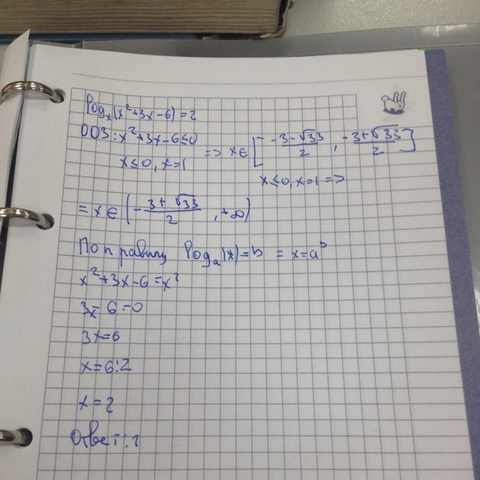 log_x(x²+3x-6)=2
ОДЗ: x²+3x-6≤0 => x∈[(-3-√33)/2, (-3+√33)/2]
x≤0, x=1
x≤0, x=1 =>
= x∈(-(3+√33)/2, +∞)
По правилу log_a(x)=b = x=a^b
x²+3x-6=x²
3x-6=0
3x=6
x=6:2
x=2
Ответ: